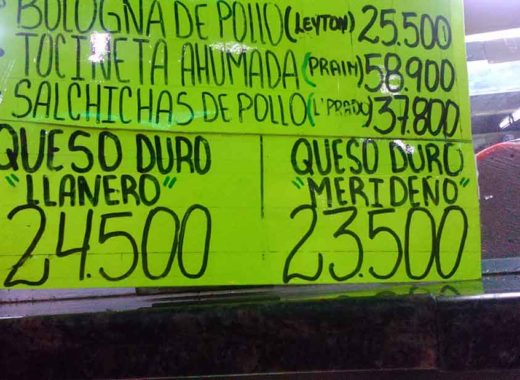 BOLOGNA DE POLLO (LEYTON) 25.500
• TOCINETA AHUMADA (PRAIM) 58.900
SALCHICHAS DE POLLO (L'PRADO) 37.800
QUESO DURO
"LLANERO"
24.500
QUESO DURO
"MERIDEÑO"
23.500